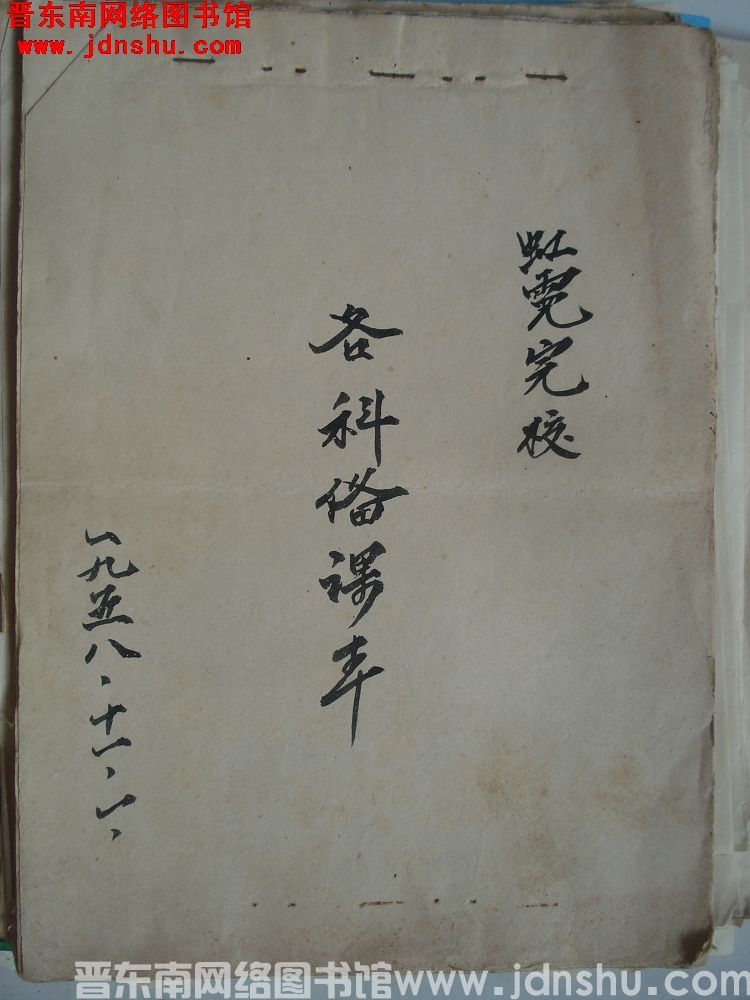 晋东南网络图书馆
www.jdnshu.com
虹霓完校
各科备课本
一九五八、十一、一、
晋东南网络图书馆www.jdnshu.com